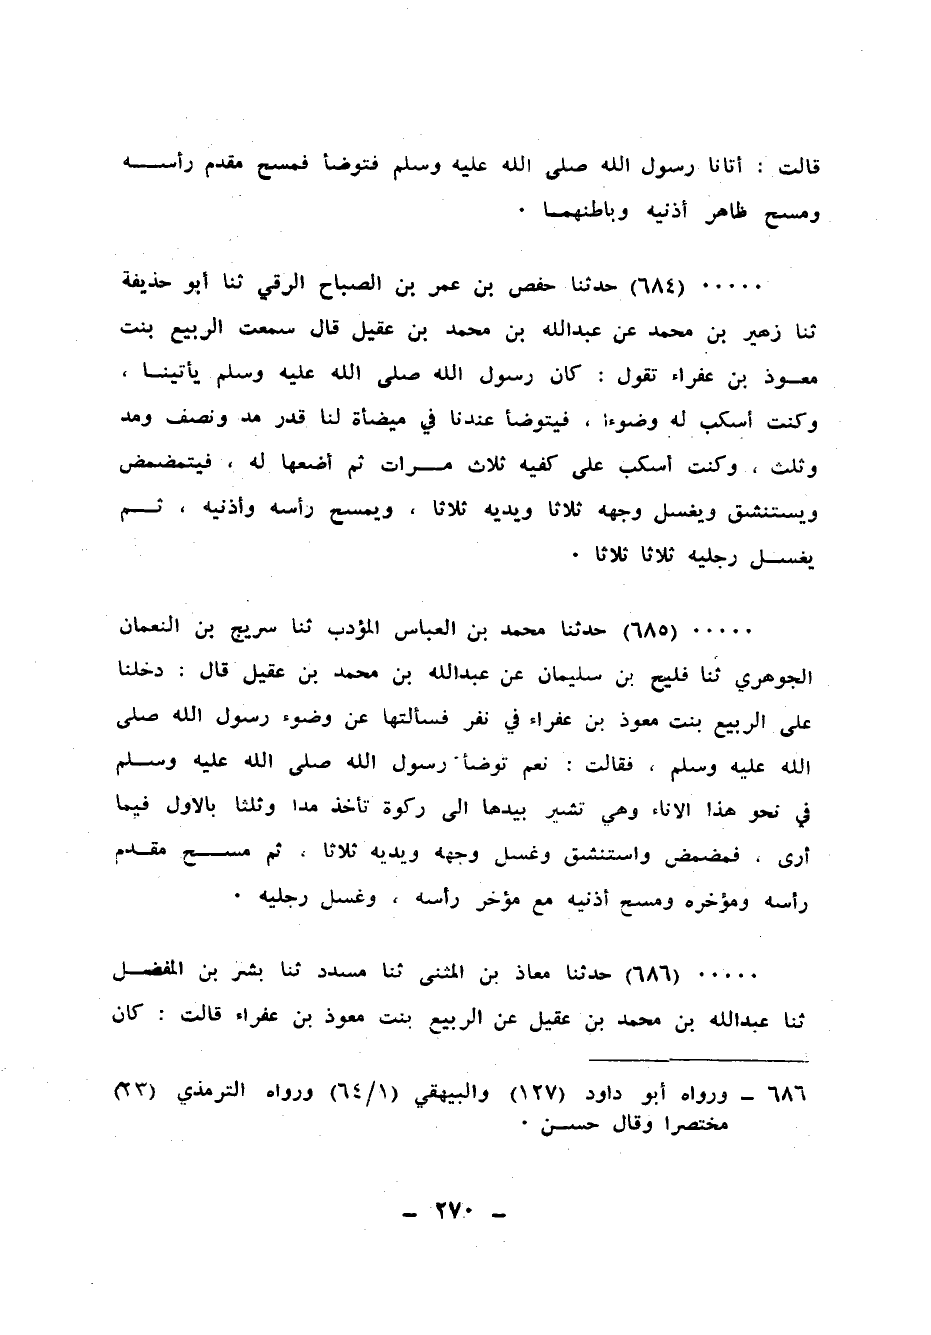 قالت : أتانا رسول الله صلى الله عليه وسلم فتوضأ فمسح مقدم رأســـه
ومسح ظاهر أذنيه وباطنهمـا ٠
٠٠٠٠٠ (٦٨٤) حدثنا حفص بن عمر بن الصباح الرقي ثنا أبو حذيفة
ثنا زهير بن محمد عن عبدالله بن محمد بن عقيل قال سمعت الربيع بنت
معـوذ بن عفراء تقول : كان رسول الله صلى الله عليه وسلم يأتينـا ،
وكنت أسكب له وضوءا ، فيتوضأ عندنا في ميضأة لنا قدر مد ونصف ومد
وثلث ، وكنت أسكب على كفيه ثلاث مـــرات ثم أضعها له ، فيتمضمض
ويستنشق ويغسل وجهه ثلاثا ويديه ثلاثا ، ويمسح رأسه وأذنيه ، ثـــم
يغســل رجليه ثلاثا ثلاثا ٠
٠٠٠٠٠ (٦٨٥) حدثنا محمد بن العباس المؤدب ثنا سريج بن النعمان
الجوهري ثنا فليح بن سليمان عن عبدالله بن محمد بن عقيل قال : دخلنا
على الربيع بنت معوذ بن عفراء في نفر فسألتها عن وضوء رسول الله صلى
الله عليه وسلم ، فقالت : نعم توضأ رسول الله صلى الله عليه وســلم
في نحو هذا الاناء وهي تشير بيدها الى ركوة تأخذ مدا وثلثا بالاول فيما
أرى ، فمضمض واستنشق وغسل وجهه ويديه ثلاثا ، ثم مســـح مقـدم
رأسه ومؤخره ومسح أذنيه مع مؤخر رأسه ، وغسل رجليه ٠
٠٠٠٠٠ (٦٨٦) حدثنا معاذ بن المثنى ثنا مسدد ثنا بشر بن المفضــل
ثنا عبدالله بن محمد بن عقيل عن الربيع بنت معوذ بن عفراء قالت : كان
٦٨٦ – ورواه أبو داود (١٢٧) والبيهقي (٦٤/١) ورواه الترمذي (٣٣)
مختصرا وقال حســن ٠
– ٢٧٠ –